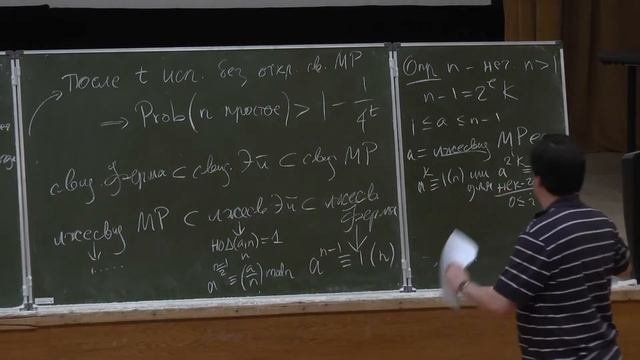 После t исп. без откр. св. МР
⇒ Prob(n простое) > 1 - 1/4^t
свид. Ферма ⊂ свид. Эй ⊂ свид МР
лжесвид МР ⊂ лжесв Эй ⊂ лжесв Ферма
НОД(a,n)=1
a^((n-1)/2) ≡ (a/n) mod n
a^(n-1) ≡ 1 (n)
Опр n - неч. n > 1
n-1 = 2^e k
1 ≤ a ≤ n-1
a = лжесвид МР
a^k ≡ 1 (n) или a^(2^i k) ≡
для нек-
0 ≤ i